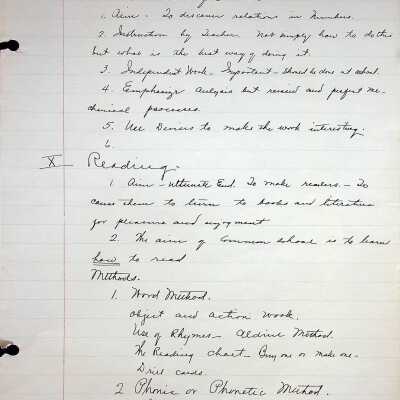 1. Aim - To discover relations in numbers.
2. Instruction by Teacher Not simply how to do this
but what is the best way of doing it.
3. Independent Work - Important - Should be done at school.
4. Emphasize Analysis but reread and perfect me-
chanical processes.
5. Use Devices to make the work interesting.
6.
X Reading.
1. Aim - Ultimate End. To make readers. - To
cause them to turn to books and literature
for pleasure and enjoyment
2. The aim of Common School is to learn
how to read
Methods.
1. Word Method.
Object and action work.
Use of Rhymes - Aldine Method.
The Reading Chart - Buy one or make one -
Drill cards.
2 Phonic or Phonetic Method.